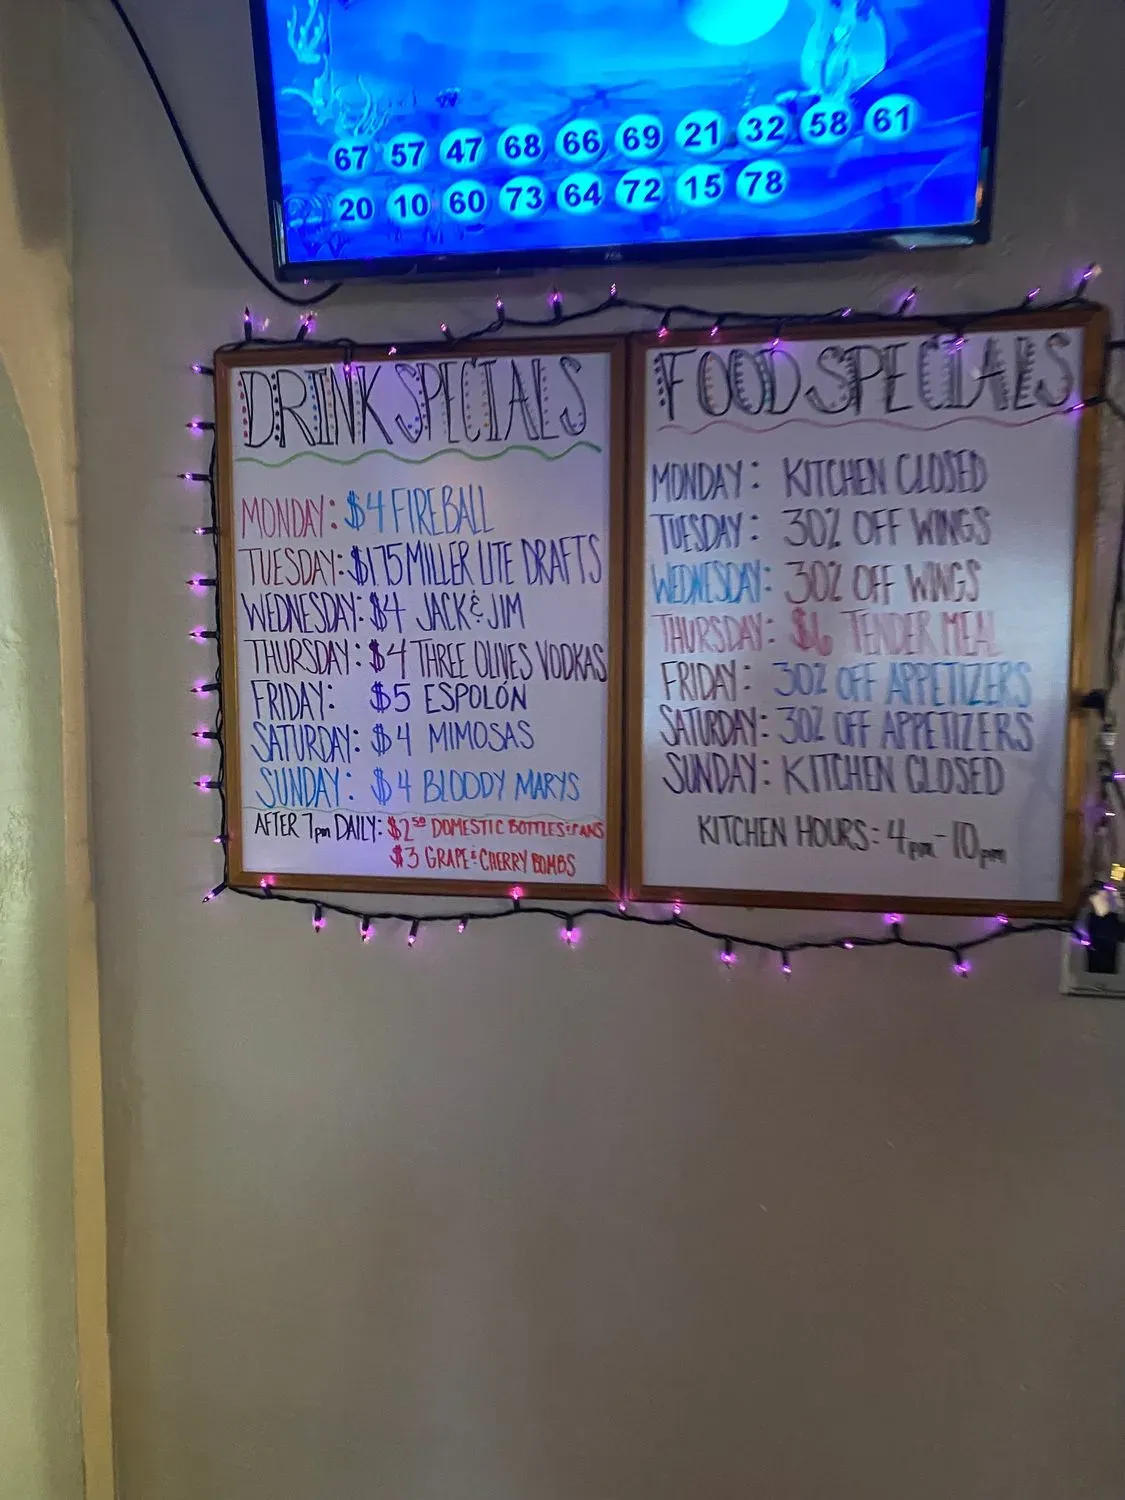 67 57 47 68 66 69 21 32 58 61
20 10 60 73 64 72 15 78
DRINK SPECIALS
MONDAY: $4 FIREBALL
TUESDAY: $1.75 MILLER LITE DRAFTS
WEDNESDAY: $4 JACK & JIM
THURSDAY: $4 THREE OLIVES VODKAS
FRIDAY: $5 ESPOLÓN
SATURDAY: $4 MIMOSAS
SUNDAY: $4 BLOODY MARYS
AFTER 7pm DAILY: $2⁵⁰ DOMESTIC BOTTLES & CANS
$3 GRAPE & CHERRY BOMBS
FOOD SPECIALS
MONDAY: KITCHEN CLOSED
TUESDAY: 30% OFF WINGS
WEDNESDAY: 30% OFF WINGS
THURSDAY: $6 TENDER MEAL
FRIDAY: 30% OFF APPETIZERS
SATURDAY: 30% OFF APPETIZERS
SUNDAY: KITCHEN CLOSED
KITCHEN HOURS: 4pm-10pm